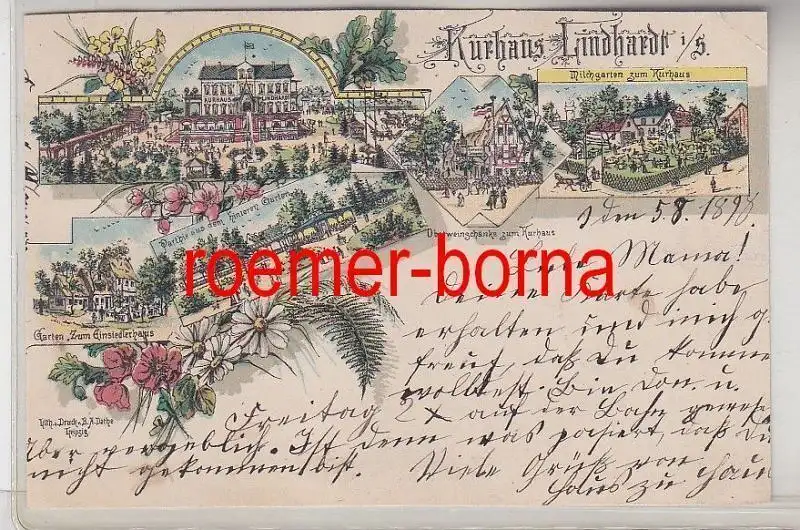 Kurhaus Lindhardt i/S.
Milchgarten zum Kurhaus
KURHAUS LINDHARDT
Parthie aus dem hinteren Garten
Obstweinschänke zum Kurhaus
Garten „Zum Einsiedlerhaus
Lith. u. Druck v. B. A. Dathe
Leipzig.
roemer-borna
d den 5.8. 1898
Liebe Mama!
Deine Karte habe
erhalten und mich ge
freut, daß Du kommen
wolltest. Bin Don. u.
Freitag 2x auf der Bahn gewese
Aber vergeblich. Ist denn was pasiert, daß Du
nicht gekommen bist. Viele Grüß von
Haus zu Haus